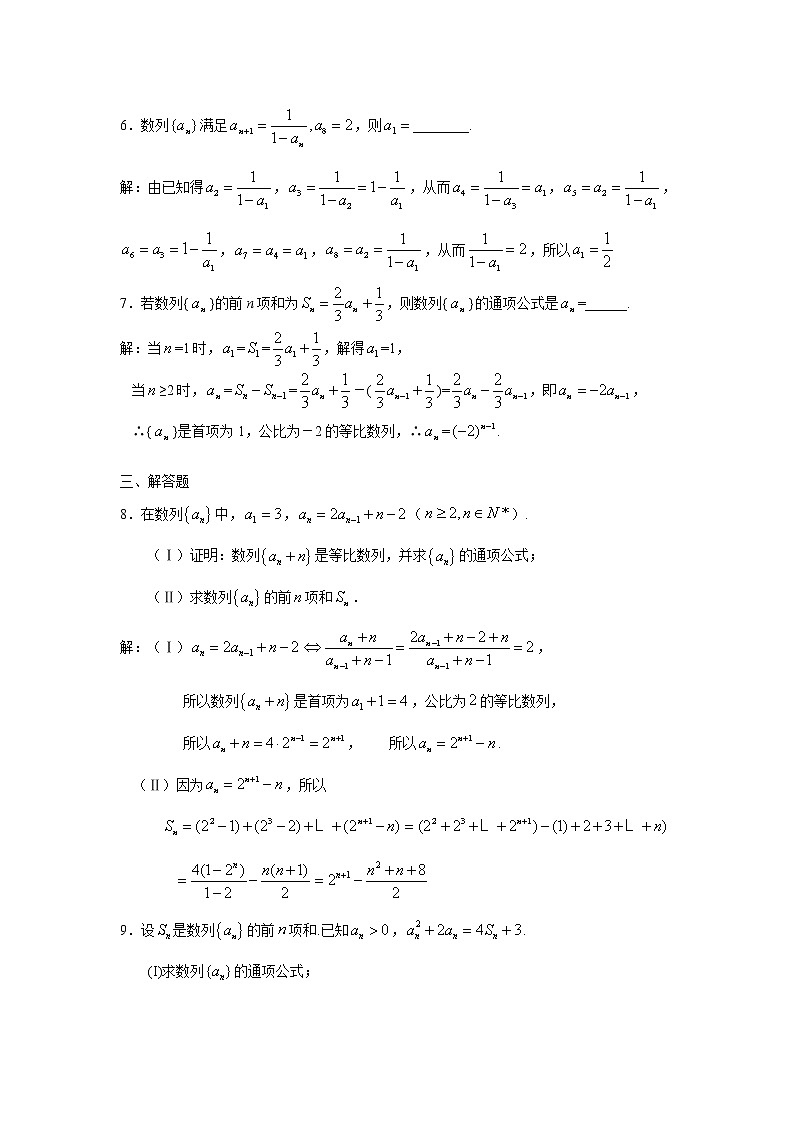 6．数列{aₙ}满足aₙ₊₁ = 1/(1−aₙ), a₈ = 2，则a₁ = ________.
解：由已知得a₂ = 1/(1−a₁)，a₃ = 1/(1−a₂) = 1−1/a₁，从而a₄ = 1/(1−a₃) = a₁，a₅ = a₂ = 1/(1−a₁)，
a₆ = a₃ = 1−1/a₁，a₇ = a₄ = a₁，a₈ = a₂ = 1/(1−a₁)，从而1/(1−a₁) = 2，所以a₁ = 1/2
7．若数列{aₙ}的前n项和为Sₙ = 2/3 aₙ + 1/3，则数列{aₙ}的通项公式是aₙ=______.
解：当n=1时，a₁=S₁=2/3 a₁ + 1/3，解得a₁=1，
当n≥2时，aₙ=Sₙ−Sₙ₋₁=2/3 aₙ + 1/3－(2/3 aₙ₋₁ + 1/3)=2/3 aₙ − 2/3 aₙ₋₁，即aₙ = −2aₙ₋₁，
∴{aₙ}是首项为1，公比为－2的等比数列，∴aₙ=(−2)ⁿ⁻¹.
三、解答题
8．在数列{aₙ}中，a₁ = 3，aₙ = 2aₙ₋₁ + n − 2（n ≥ 2, n ∈ N*）.
（Ⅰ）证明：数列{aₙ + n}是等比数列，并求{aₙ}的通项公式；
（Ⅱ）求数列{aₙ}的前n项和Sₙ．
解：（Ⅰ）aₙ = 2aₙ₋₁ + n − 2 ⇔ (aₙ + n)/(aₙ₋₁ + n − 1) = (2aₙ₋₁ + n − 2 + n)/(aₙ₋₁ + n − 1) = 2，
所以数列{aₙ + n}是首项为a₁ + 1 = 4，公比为2的等比数列，
所以aₙ + n = 4·2ⁿ⁻¹ = 2ⁿ⁺¹， 所以aₙ = 2ⁿ⁺¹ − n.
（Ⅱ）因为aₙ = 2ⁿ⁺¹ − n，所以
Sₙ = (2² − 1) + (2³ − 2) + L + (2ⁿ⁺¹ − n) = (2² + 2³ + L + 2ⁿ⁺¹) − (1) + 2 + 3 + L + n)
= 4(1−2ⁿ)/(1−2) − n(n+1)/2 = 2ⁿ⁺¹ − (n² + n + 8)/2
9．设Sₙ是数列{aₙ}的前n项和.已知aₙ > 0，aₙ² + 2aₙ = 4Sₙ + 3.
(I)求数列{aₙ}的通项公式；